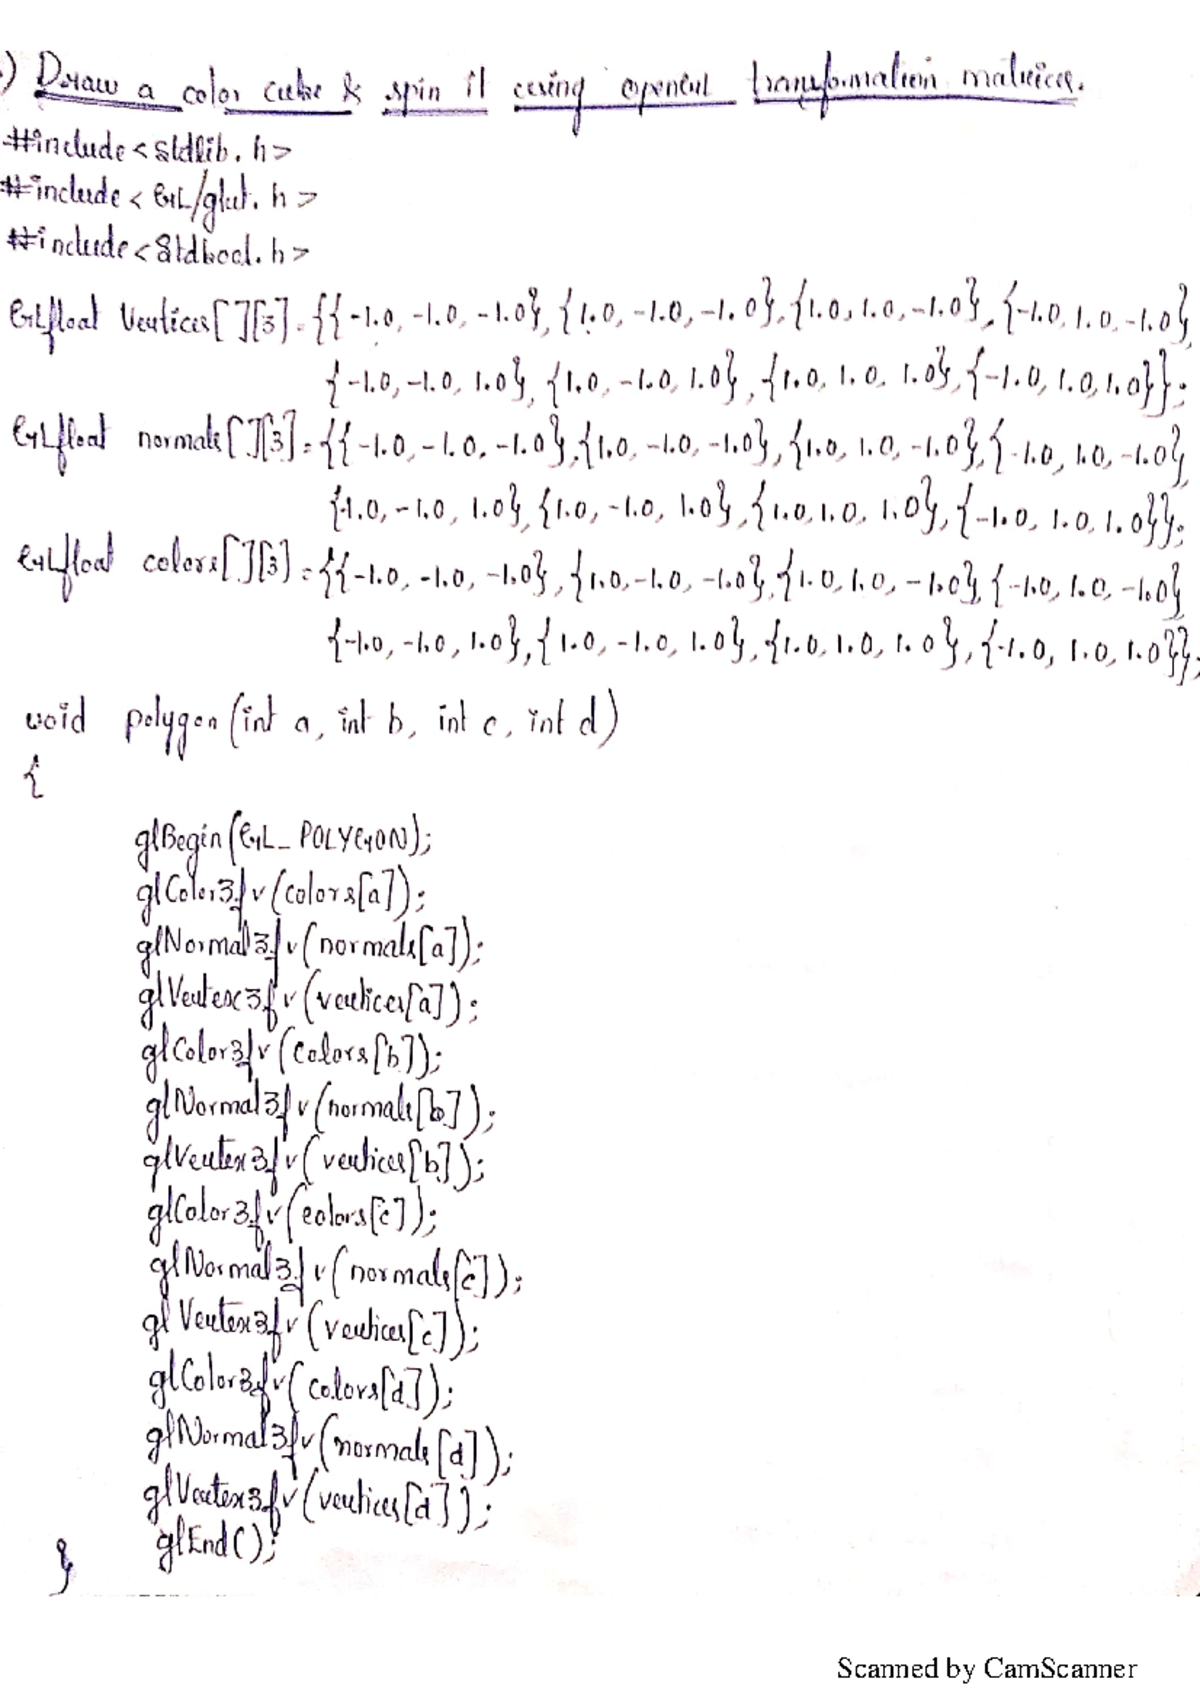 ) Draw a color cube & spin it using openGL transformation matrices.
#include<stdlib.h>
#include<GL/glut.h>
#include<stdbool.h>
GLfloat vertices[][3]={{-1.0,-1.0,-1.0},{1.0,-1.0,-1.0},{1.0,1.0,-1.0},{-1.0,1.0,-1.0},
{-1.0,-1.0,1.0},{1.0,-1.0,1.0},{1.0,1.0,1.0},{-1.0,1.0,1.0}};
GLfloat normals[][3]={{-1.0,-1.0,-1.0},{1.0,-1.0,-1.0},{1.0,1.0,-1.0},{-1.0,1.0,-1.0},
{-1.0,-1.0,1.0},{1.0,-1.0,1.0},{1.0,1.0,1.0},{-1.0,1.0,1.0}};
GLfloat colors[][3]={{-1.0,-1.0,-1.0},{1.0,-1.0,-1.0},{1.0,1.0,-1.0},{-1.0,1.0,-1.0}
{-1.0,-1.0,1.0},{1.0,-1.0,1.0},{1.0,1.0,1.0},{-1.0,1.0,1.0}};
void polygon(int a, int b, int c, int d)
{
glBegin(GL_POLYGON);
glColor3fv(colors[a]);
glNormal3fv(normals[a]);
glVertex3fv(vertices[a]);
glColor3fv(colors[b]);
glNormal3fv(normals[b]);
glVertex3fv(vertices[b]);
glColor3fv(colors[c]);
glNormal3fv(normals[c]);
glVertex3fv(vertices[c]);
glColor3fv(colors[d]);
glNormal3fv(normals[d]);
glVertex3fv(vertices[d]);
glEnd();
}
Scanned by CamScanner